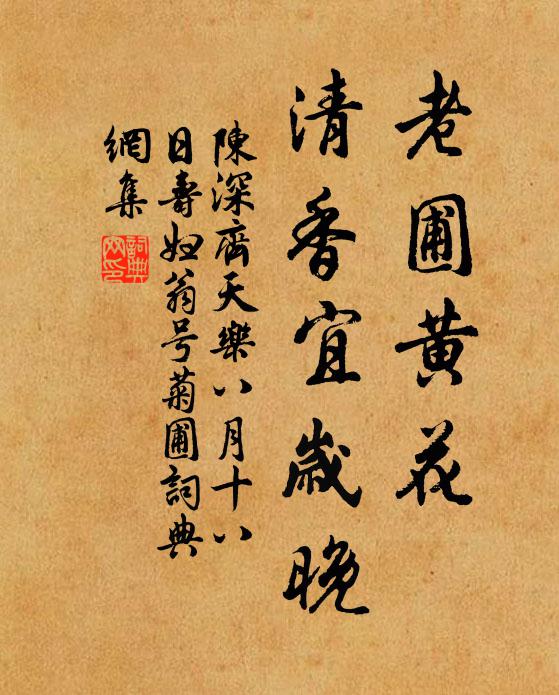 老圃黄花
清香宜歲晚
陳深齊天樂八月十八
日壽妇翁号菊圃詞典
網集
詞典
网印